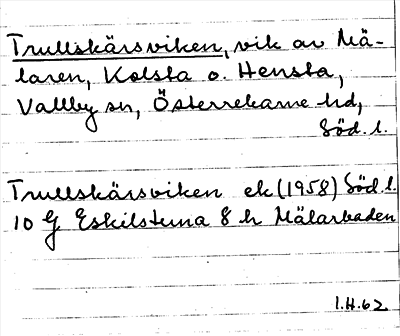 Trullskärsviken, vik av Mä-
laren, Kolsta o. Hensta,
Vallby sn, Österrekarne hd,
Söd. l.
Trullskärsviken ek (1958) Söd. l.
10 G Eskilstuna 8 h Mälarbaden
I.H. 62